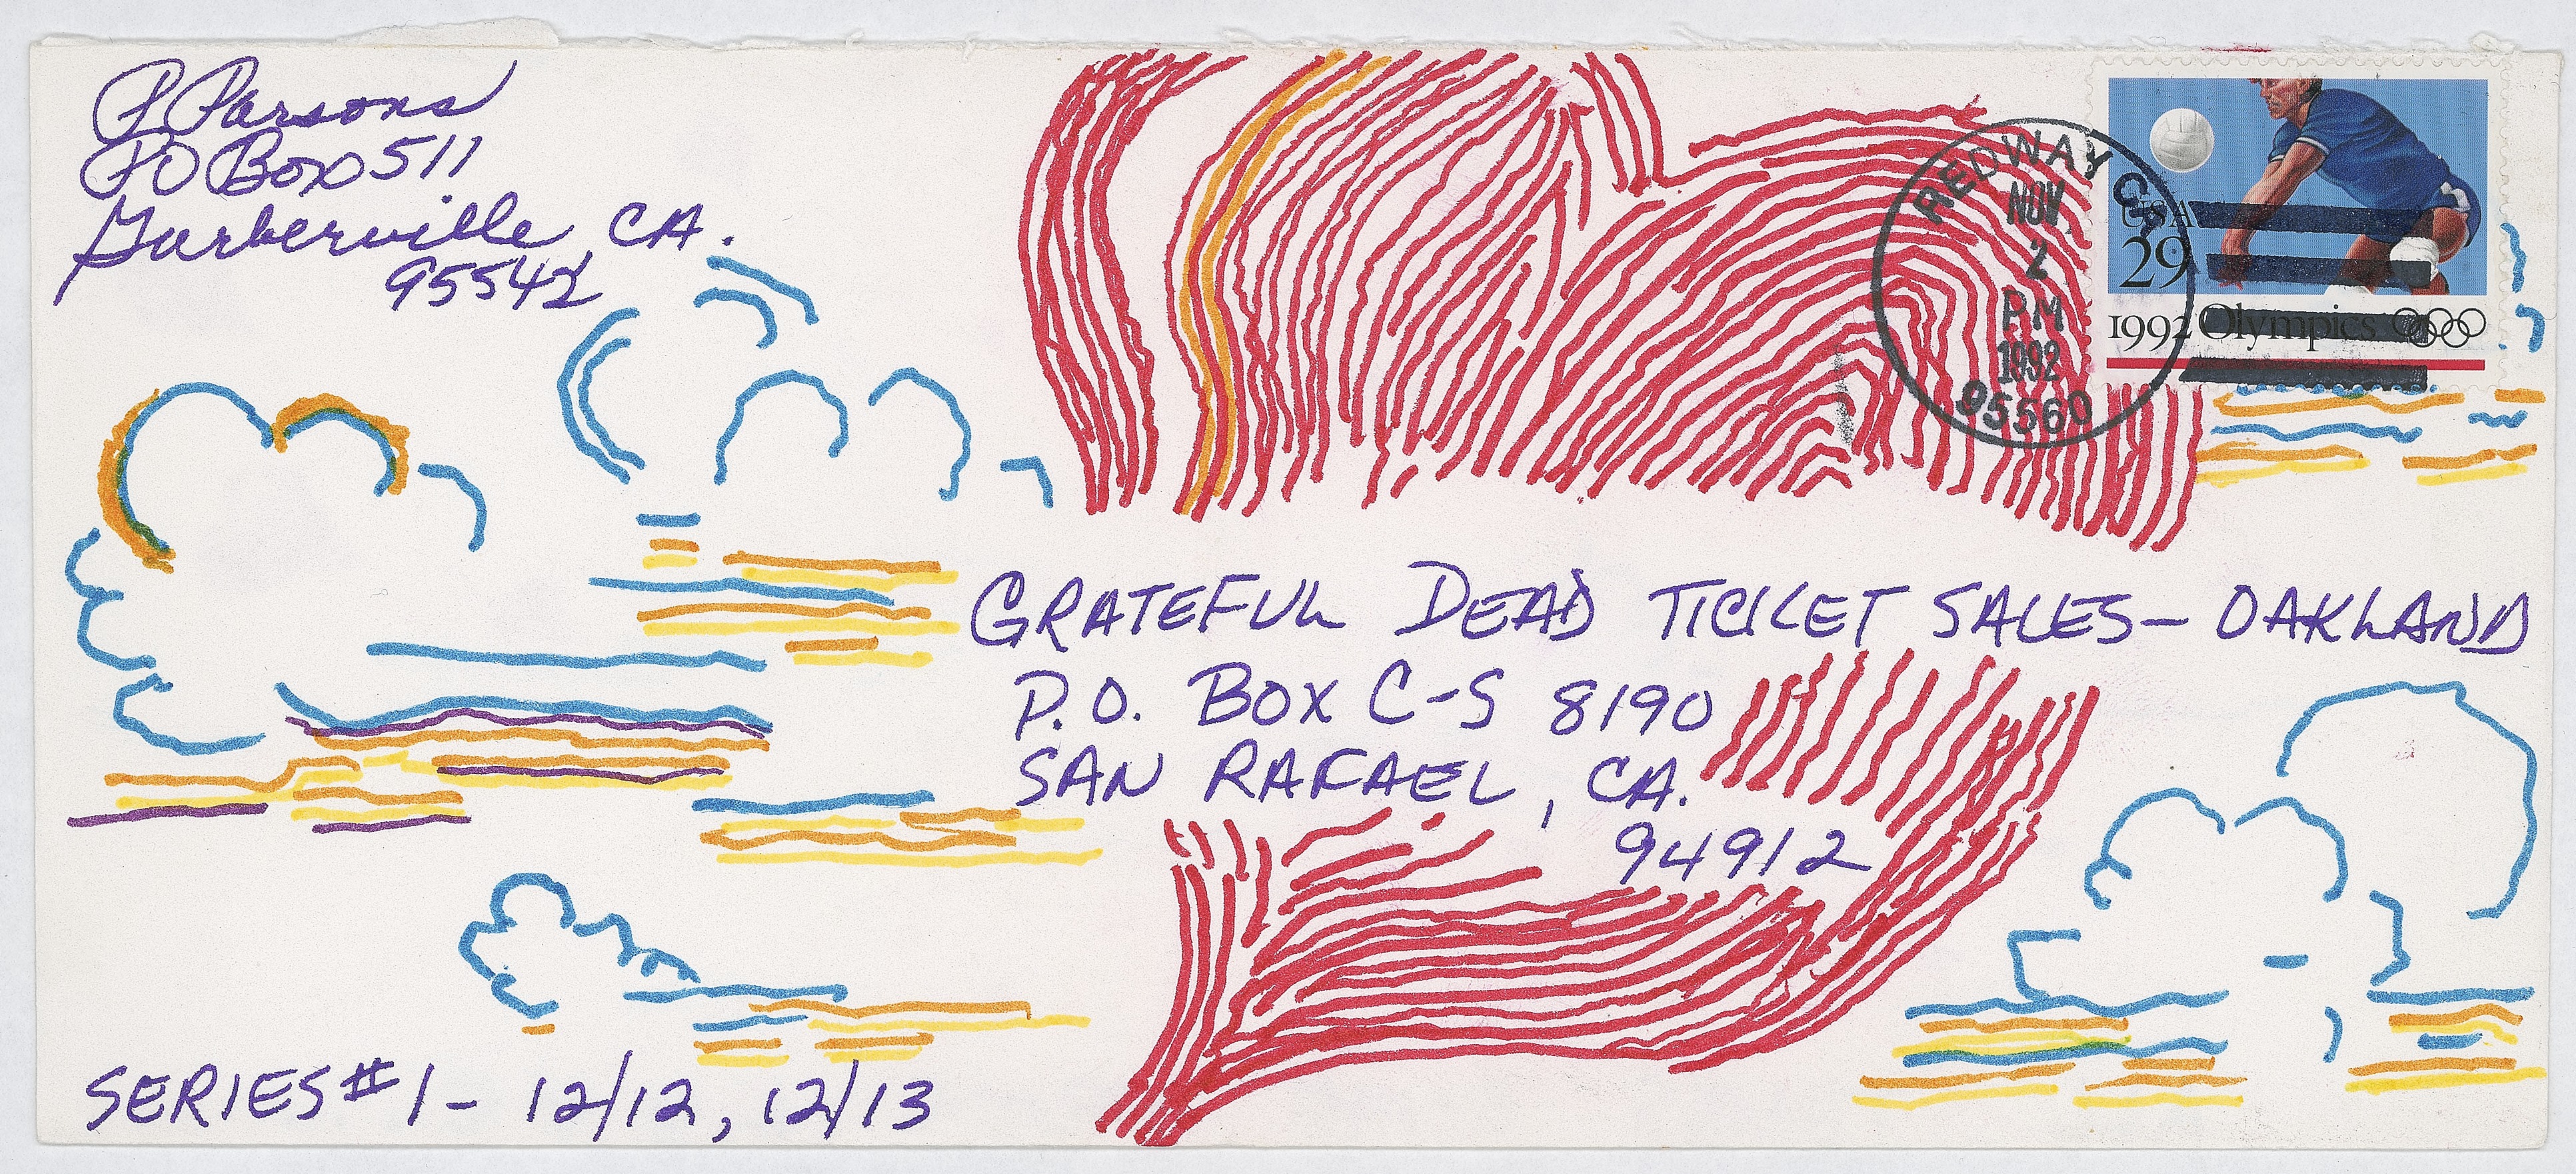 P Parsons
PO Box 511
Garberville, CA.
95542
REDWAY CA
NOV
2
PM
1992
95560
USA
29
1992 Olympics
GRATEFUL DEAD TICKET SALES - OAKLAND
P.O. BOX C-S 8190
SAN RAFAEL, CA.
94912
SERIES #1 - 12/12, 12/13